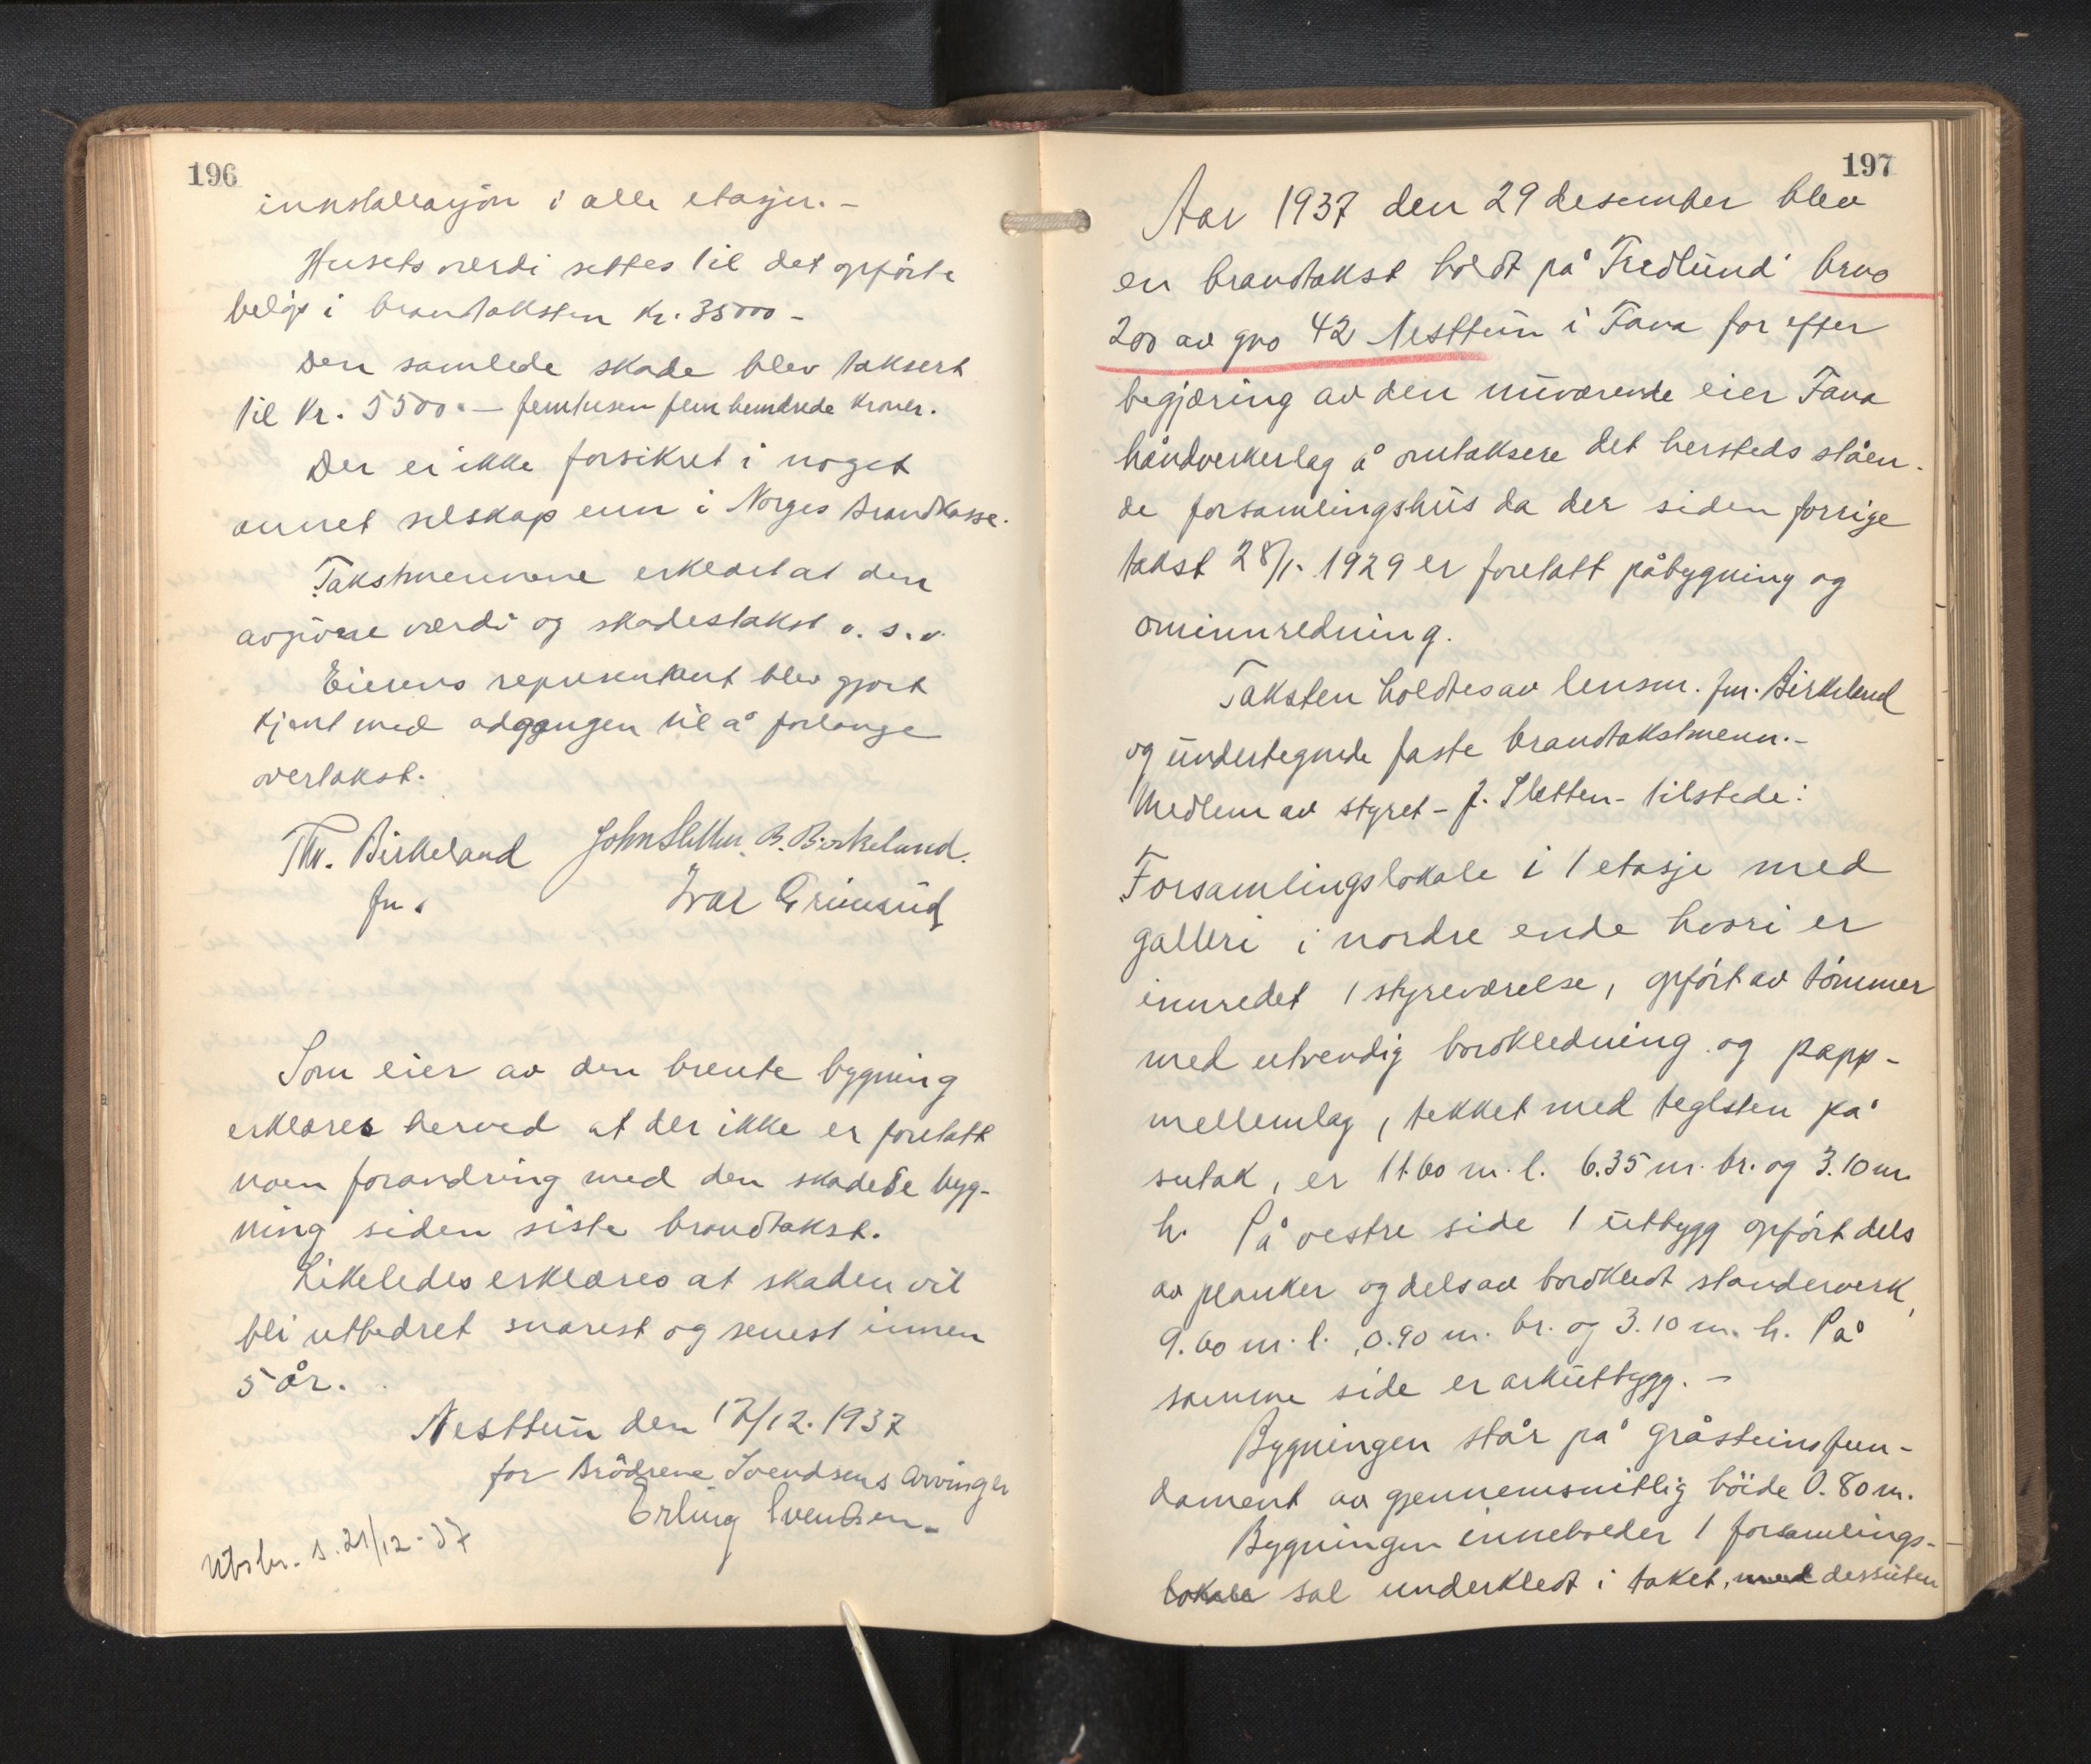 196
innstallasjon i alle etasjer. -
Husets værdi settes til det opförte
beløp i brandtaksten Kr. 35000 -
Den samlede skade blev taksert
til Kr. 5500.- femtusen fem hundrede kroner.
Der er ikke forsikret i noget
annet selskap enn i Norges Brandkasse.
Takstmennene erklært at den
avgivne værdi og skadestakst o. s. v.
Eierens representant blev gjort
kjent med adgangen til å forlange
overtakst.
Thv. Birkeland John Sletten B. Birkeland.
fm. Ivar Grimseid
Som eier av den brente bygning
erklæres herved at der ikke er foretatt
noen forandring med den skadede byg-
ning siden siste brandtakst.
Likeledes erklæres at skaden vil
bli utbedret snarest og senest innen
5 år.
Nesttun den 17/12. 1937
for Brödrene Svendsens Arvinger
Erling Svendsen.
Utskr. s. 21/12-37
197
Aar 1937 den 29 desember blev
en brandtakst holdt på Fredlund brno
200 av gno 42 Nesttun i Fana for efter
begjæring av den nuværende eier Fana
håndverkerlag å omtaksere det hersteds ståen-
de forsamlingshus da der siden forrige
takst 28/1. 1929 er foretatt påbygning og
ominnredning.
Taksten holdtes av lensm. fm. Birkeland
og undertegnede faste brandtakstmenn.-
Medlem av styret - J. Sletten - tilstede:
Forsamlingslokale i 1 etasje med
galleri i nordre ende hvori er
innredet 1 styreværelse, opfört av tömmer
med utvendig bordkledning og papp-
mellemlag, tekket med teglsten på
sutak, er 11.60 m. l. 6.35 m. br. og 3.10 m.
h. På vestre side 1 utbygg opfört dels
av planker og dels av bordkledt standerverk,
9.60 m. l. 0.90 m. br. og 3.10 m. h. På
samme side er arkutbygg. -
Bygningen står på gråsteinsfun-
dament av gjennemsnitlig höide 0.80 m.
Bygningen inneholder 1 forsamlings-
lokale sal underkledt i taket, med dessuten